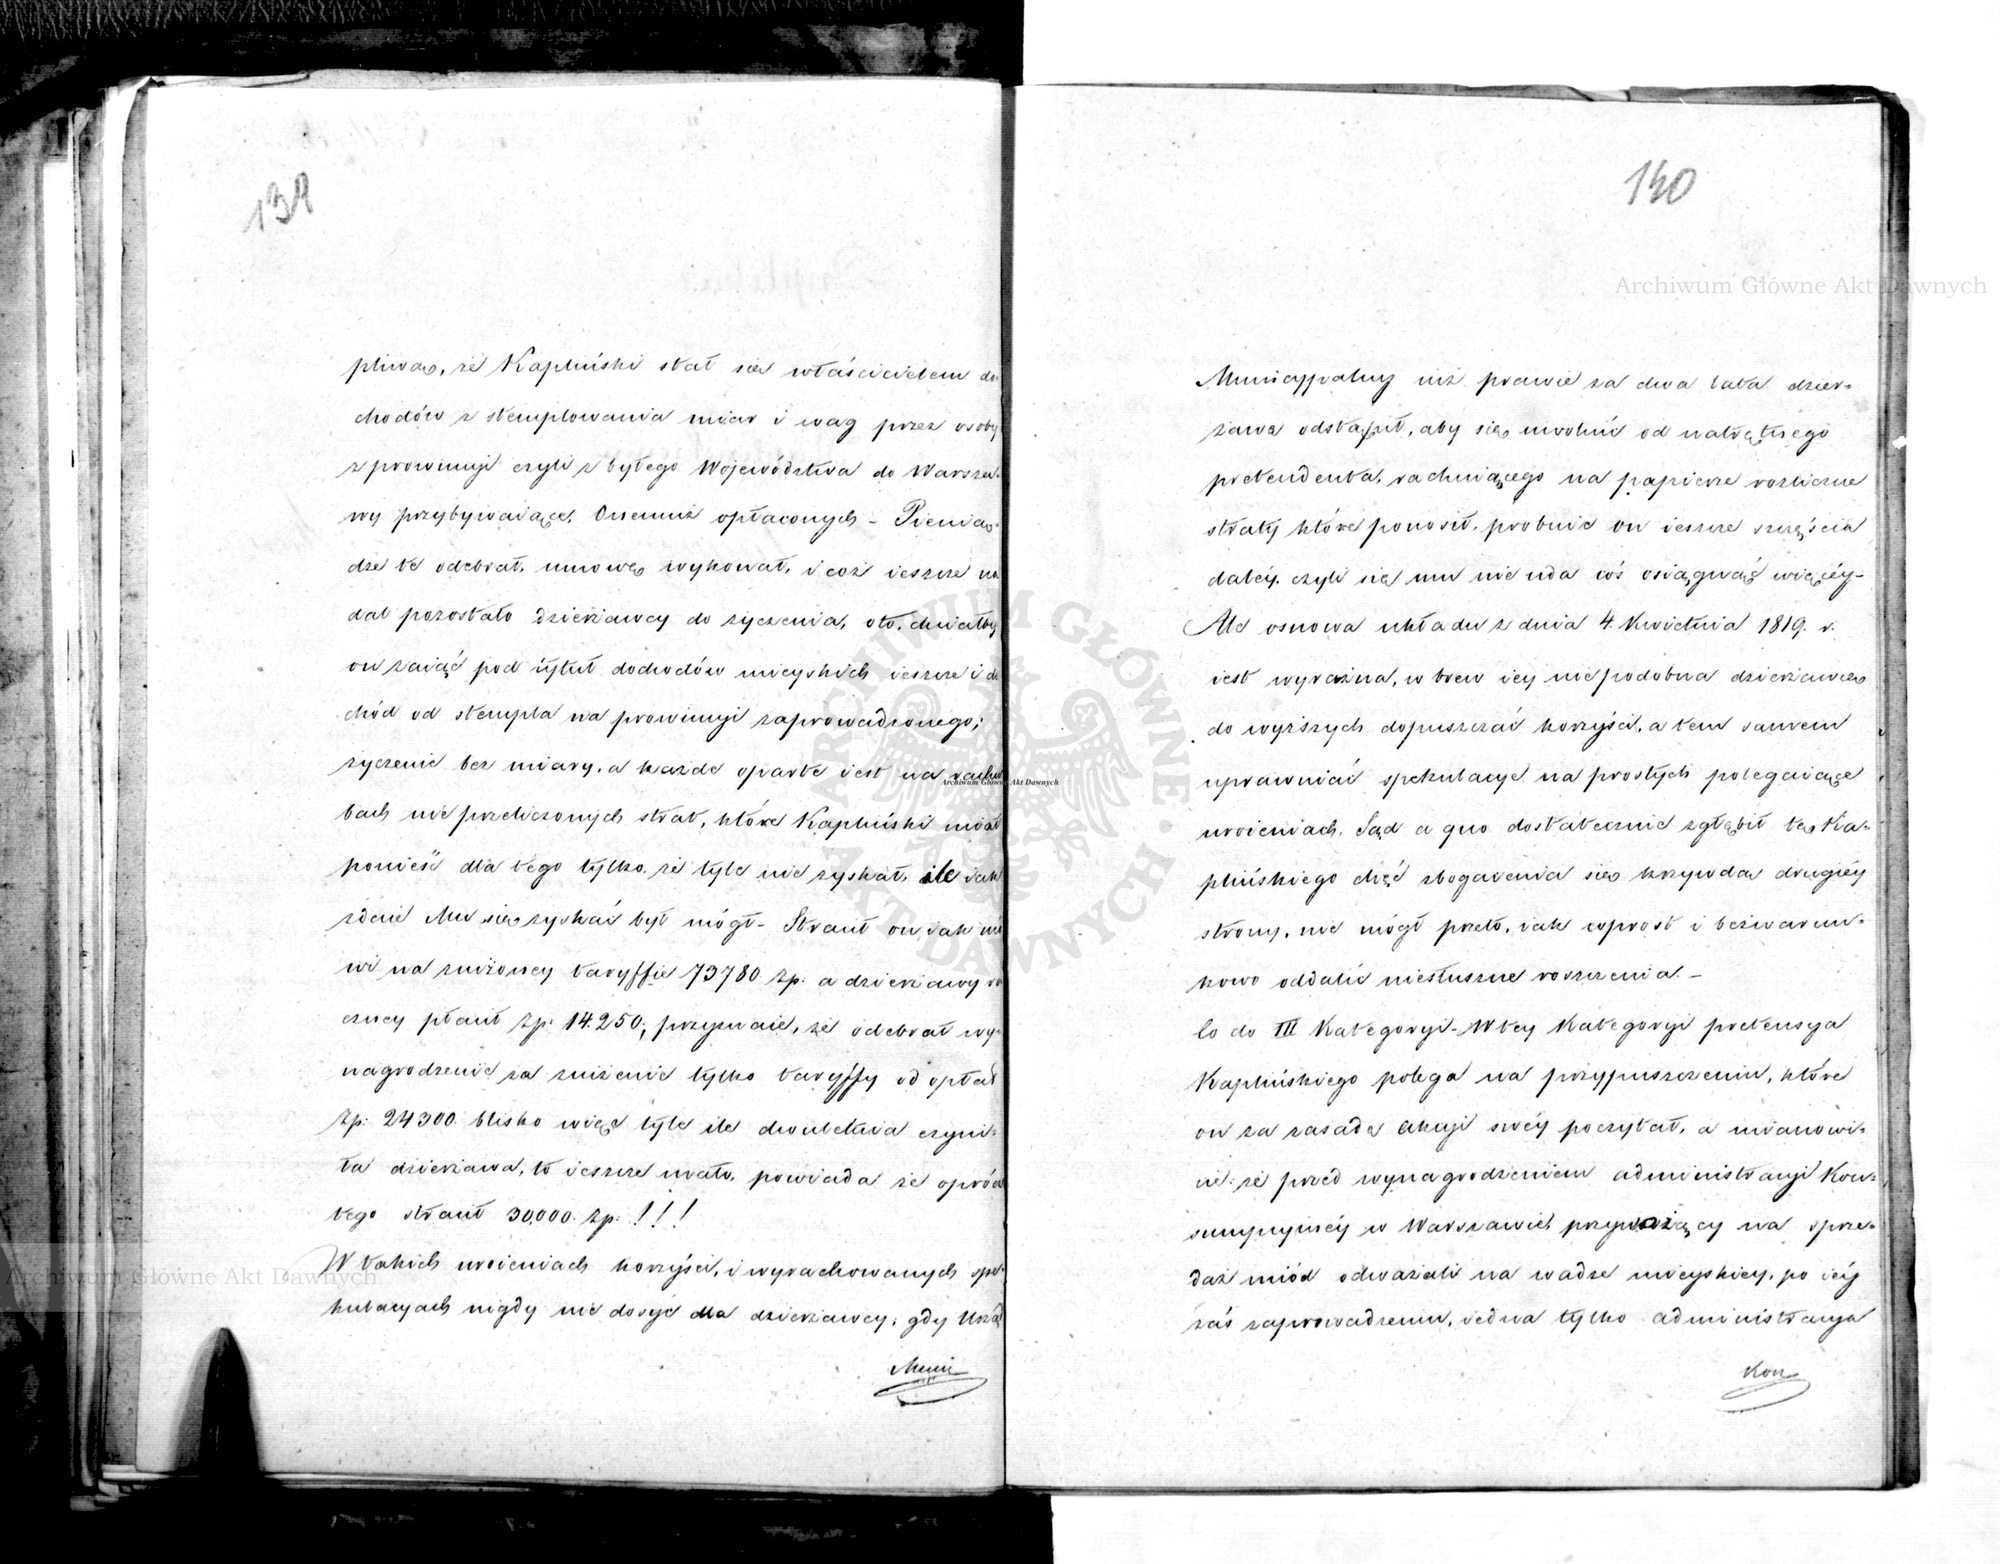 139
pliwą, że Kapliński stał się właścicielem do
chodów z stemplowania miar i wag przez osoby
z prowincyi czyli z byłego Województwa do Warsza-
wy przybywaiące, Onemuż opłaconych – Pienią-
dze te odebrał, umowę wykonał, i cóż ieszcze na
dal pozostało dzierżawcy do życzenia, oto, chciałby
on zaiąć pod tytuł dochodów mieyskich ieszcze i do
chód od stempla na prowincyi zaprowadzonego;
życzenie bez miary, a każde oparte iest na rachu
bach nieprzeliczonych strat, które Kapliński miał
ponieść dla tego tylko, że tyle nie zyskał, ile iak
zdaie Mu się zyskać był mógł – Stracił on, iak mó
wi na zniżoney taryffie 73780 Zp: a dzierżawy ro
czney płacił Zp: 14.250, przyznaie, że odebrał wy-
nagrodzenie za zniżenie tylko taryffy od opłat
Zp: 24300. blisko więc tyle ile dwuletnia czyni-
ła dzierżawa, to ieszcze mało, powiada że oprócz
tego stracił 30,000. Zp: !!!
W takich uroieniach korzyści, i wyrachowanych spe-
kulacyach nigdy nie dosyć dla dzierżawcy; gdy Urząd
Muni
140
Archiwum Główne Akt Dawnych
Municypalny już prawie za dwa lata dzier-
żawę odstąpił, aby się uwolnić od natrętnego
pretendenta, rachuiącego na papierze rozliczne
straty które ponosił, probuie on ieszcze szczęścia
daléy, czyli się mu nie uda coś osiągnąć więcéy –
Ale osnowa układu z dnia 4. Kwietnia 1819. r.
iest wyraźna, wbrew iey niepodobna dzierżawcę
do wyższych dopuszczać korzyści, a tem samem
uprawniać spekulacye na prostych polegaiące
uroieniach. Sąd a quo dostatecznie zgłębił tę Ka-
plińskiego chęć zbogacenia się krzywdą drugiéy
strony, nie mógł przeto, iak wprost i bezwarun-
kowo oddalić niesłuszne roszczenia –
Co do III Kategoryi – W tey Kategoryi pretensya
Kaplińskiego polega na przypuszczeniu, które
on za zasadę akcyi swéy poczytał, a mianowi-
cie: że przed wynagrodzeniem administracyi Kon-
sumpcyinéy w Warszawie przywożący na sprze-
daż miód odważali na wadze mieyskiey, po iéy
zaś zaprowadzeniu, iedna tylko administracya
Kon
Archiwum Główne Akt Dawnych
Archiwum Główne Akt Dawnych
ARCHIWUM GŁÓWNE · AKT DAWNYCH ·